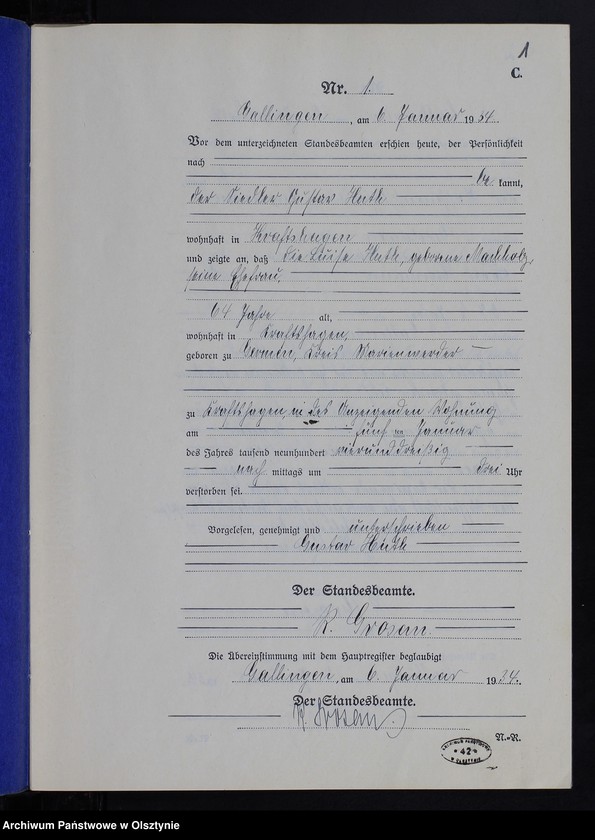 1
C.
Nr. 1.
Gallingen, am 6. Januar 1934.
Vor dem unterzeichneten Standesbeamten erschien heute, der Persönlichkeit
nach
be kannt,
der Siedler Gustav
wohnhaft in Kraftshagen
und zeigte an, daß die Luise, geborene Machholz,
seine Ehefrau.
64 Jahre alt,
wohnhaft in Kraftshagen,
geboren zu Kreis Marienwerder
zu Kraftshagen, in des Anzeigenden Wohnung
am fünften Januar
des Jahres tausend neunhundert vierunddreißig
nach mittags um drei Uhr
verstorben sei.
Vorgelesen, genehmigt und unterschrieben
Gustav
Der Standesbeamte.
R. Grosan
Die Übereinstimmung mit dem Hauptregister beglaubigt
Gallingen, am 6. Januar 1934.
Der Standesbeamte.
R. Grosan
N.-R.
42
Archiwum Państwowe w Olsztynie